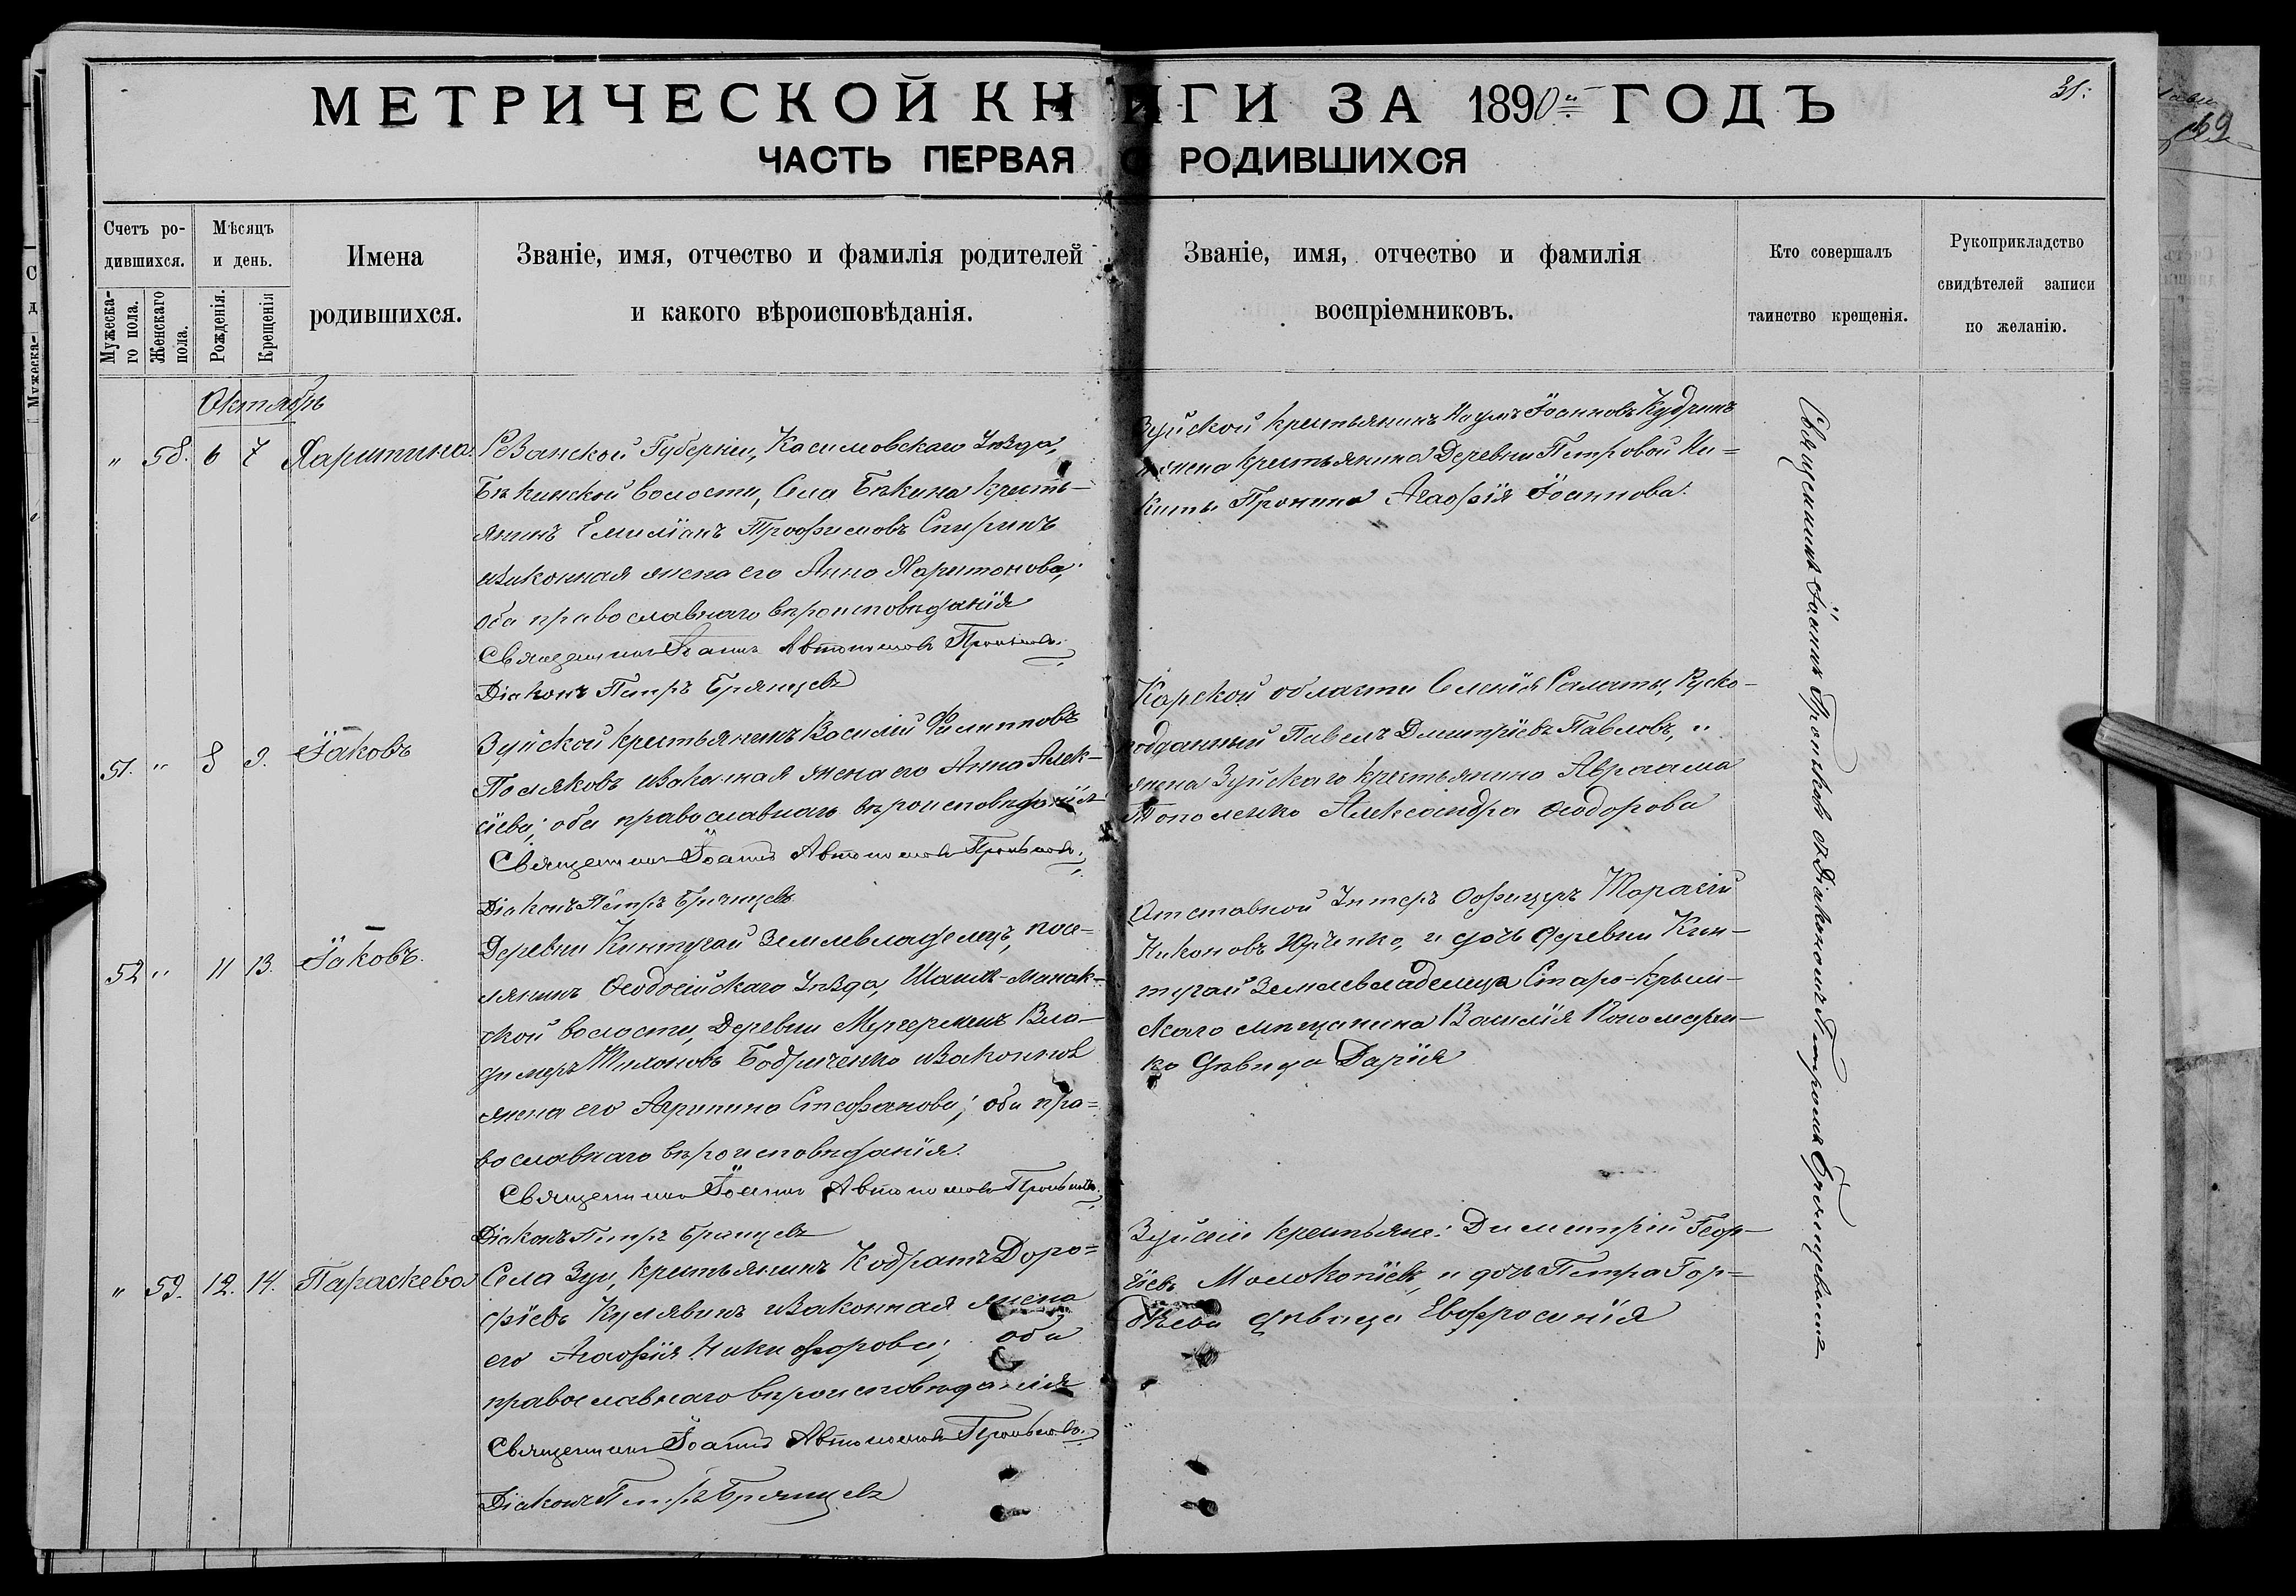 МЕТРИЧЕСКОЙ КНИГИ ЗА 1890й ГОДЪ
31.
ЧАСТЬ ПЕРВАЯ О РОДИВШИХСЯ
Счетъ ро-
дившихся.
Мужеска-
го пола.
Женскаго
пола.
Мѣсяцъ
и день.
Рожденія.
Крещенія
Имена
родившихся.
Званіе, имя, отчество и фамилія родителей
и какого вѣроисповѣданія.
Званіе, имя, отчество и фамилія
воспріемниковъ.
Кто совершалъ
таинство крещенія.
Рукоприкладство
свидѣтелей записи
по желанію.
Октябрь
" 58. 6 7 Харитина.
Рязанской Губерніи, Касимовскаго Уѣзда,
Бѣкинской волости, Села Бѣкина кресть-
янинъ Емиліанъ Трофимовъ Спиринъ
изаконная жена его Анна Харитонова;
оба православнаго вѣроисповѣданія
Священникъ Іоаннъ Автономовъ
Діаконъ Петръ Брянцевъ
Зуйской крестьянинъ Наумъ Іоанновъ Кудринъ
и жена крестьянина Деревни Петровой Ни-
киты Пронина Агафія Іоаннова.
51. " 8 9. Іаковъ
Зуйской крестьянинъ Василій Филипповъ
Поляковъ изаконная жена его Анна Алек-
сіева; оба православнаго вѣроисповѣданія
Священникъ Іоаннъ Автономовъ
Діаконъ Петръ Брянцевъ
Карской области Селенія Руско-
подданный Павелъ Дмитріевъ Павловъ, и
жена Зуйскаго крестьянина Авраама
Тополенко Александра Ѳеодорова
52 " 11 13. Іаковъ.
Деревни Кинтугай Землевладелецъ, посе-
лянинъ Ѳеодосійскаго Уѣзда,
ской волости, Деревни Вла-
димеръ Тихоновъ Бодриченко изаконная
жена его Агрипина Стефанова; оба пра-
вославнаго вѣроисповѣданія.
Священникъ Іоаннъ Автономовъ
Діаконъ Петръ Брянцевъ
Отставной Унтеръ Офицеръ Тарасій
Никоновъ и дочь деревни Кин-
тугай Землевладелеца Старо-Крым-
скаго мѣщанина Василія Пономарен-
ко дѣвица Дарія
" 59. 12. 14. Параскева
Села Зуи, крестьянинъ Кодратъ Доро-
фіевъ Кулявинъ изаконная жена
его Агафія Никифорова; оба
православнаго вѣроисповѣданія
Священникъ Іоаннъ Автономовъ
Діаконъ Петръ Брянцевъ
Зуйскіе крестьяне: Димитрій Геор-
гіевъ и дочь Петра Гор-
дѣева дѣвица Евфросинія
Священникъ Іоаннъ съ Діакономъ Петромъ Брянцевымъ